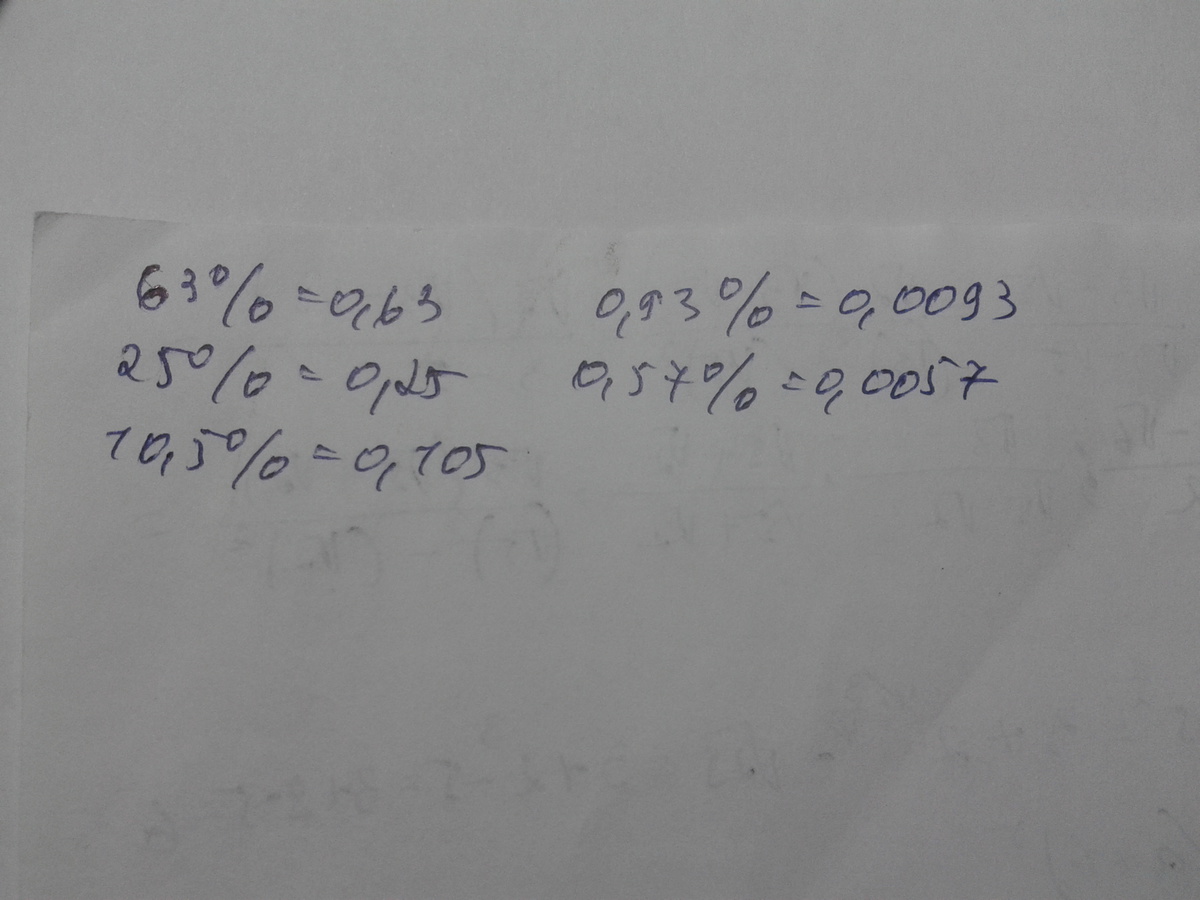 63% = 0,63
25% = 0,25
10,5% = 0,105
0,93% = 0,0093
0,57% = 0,0057